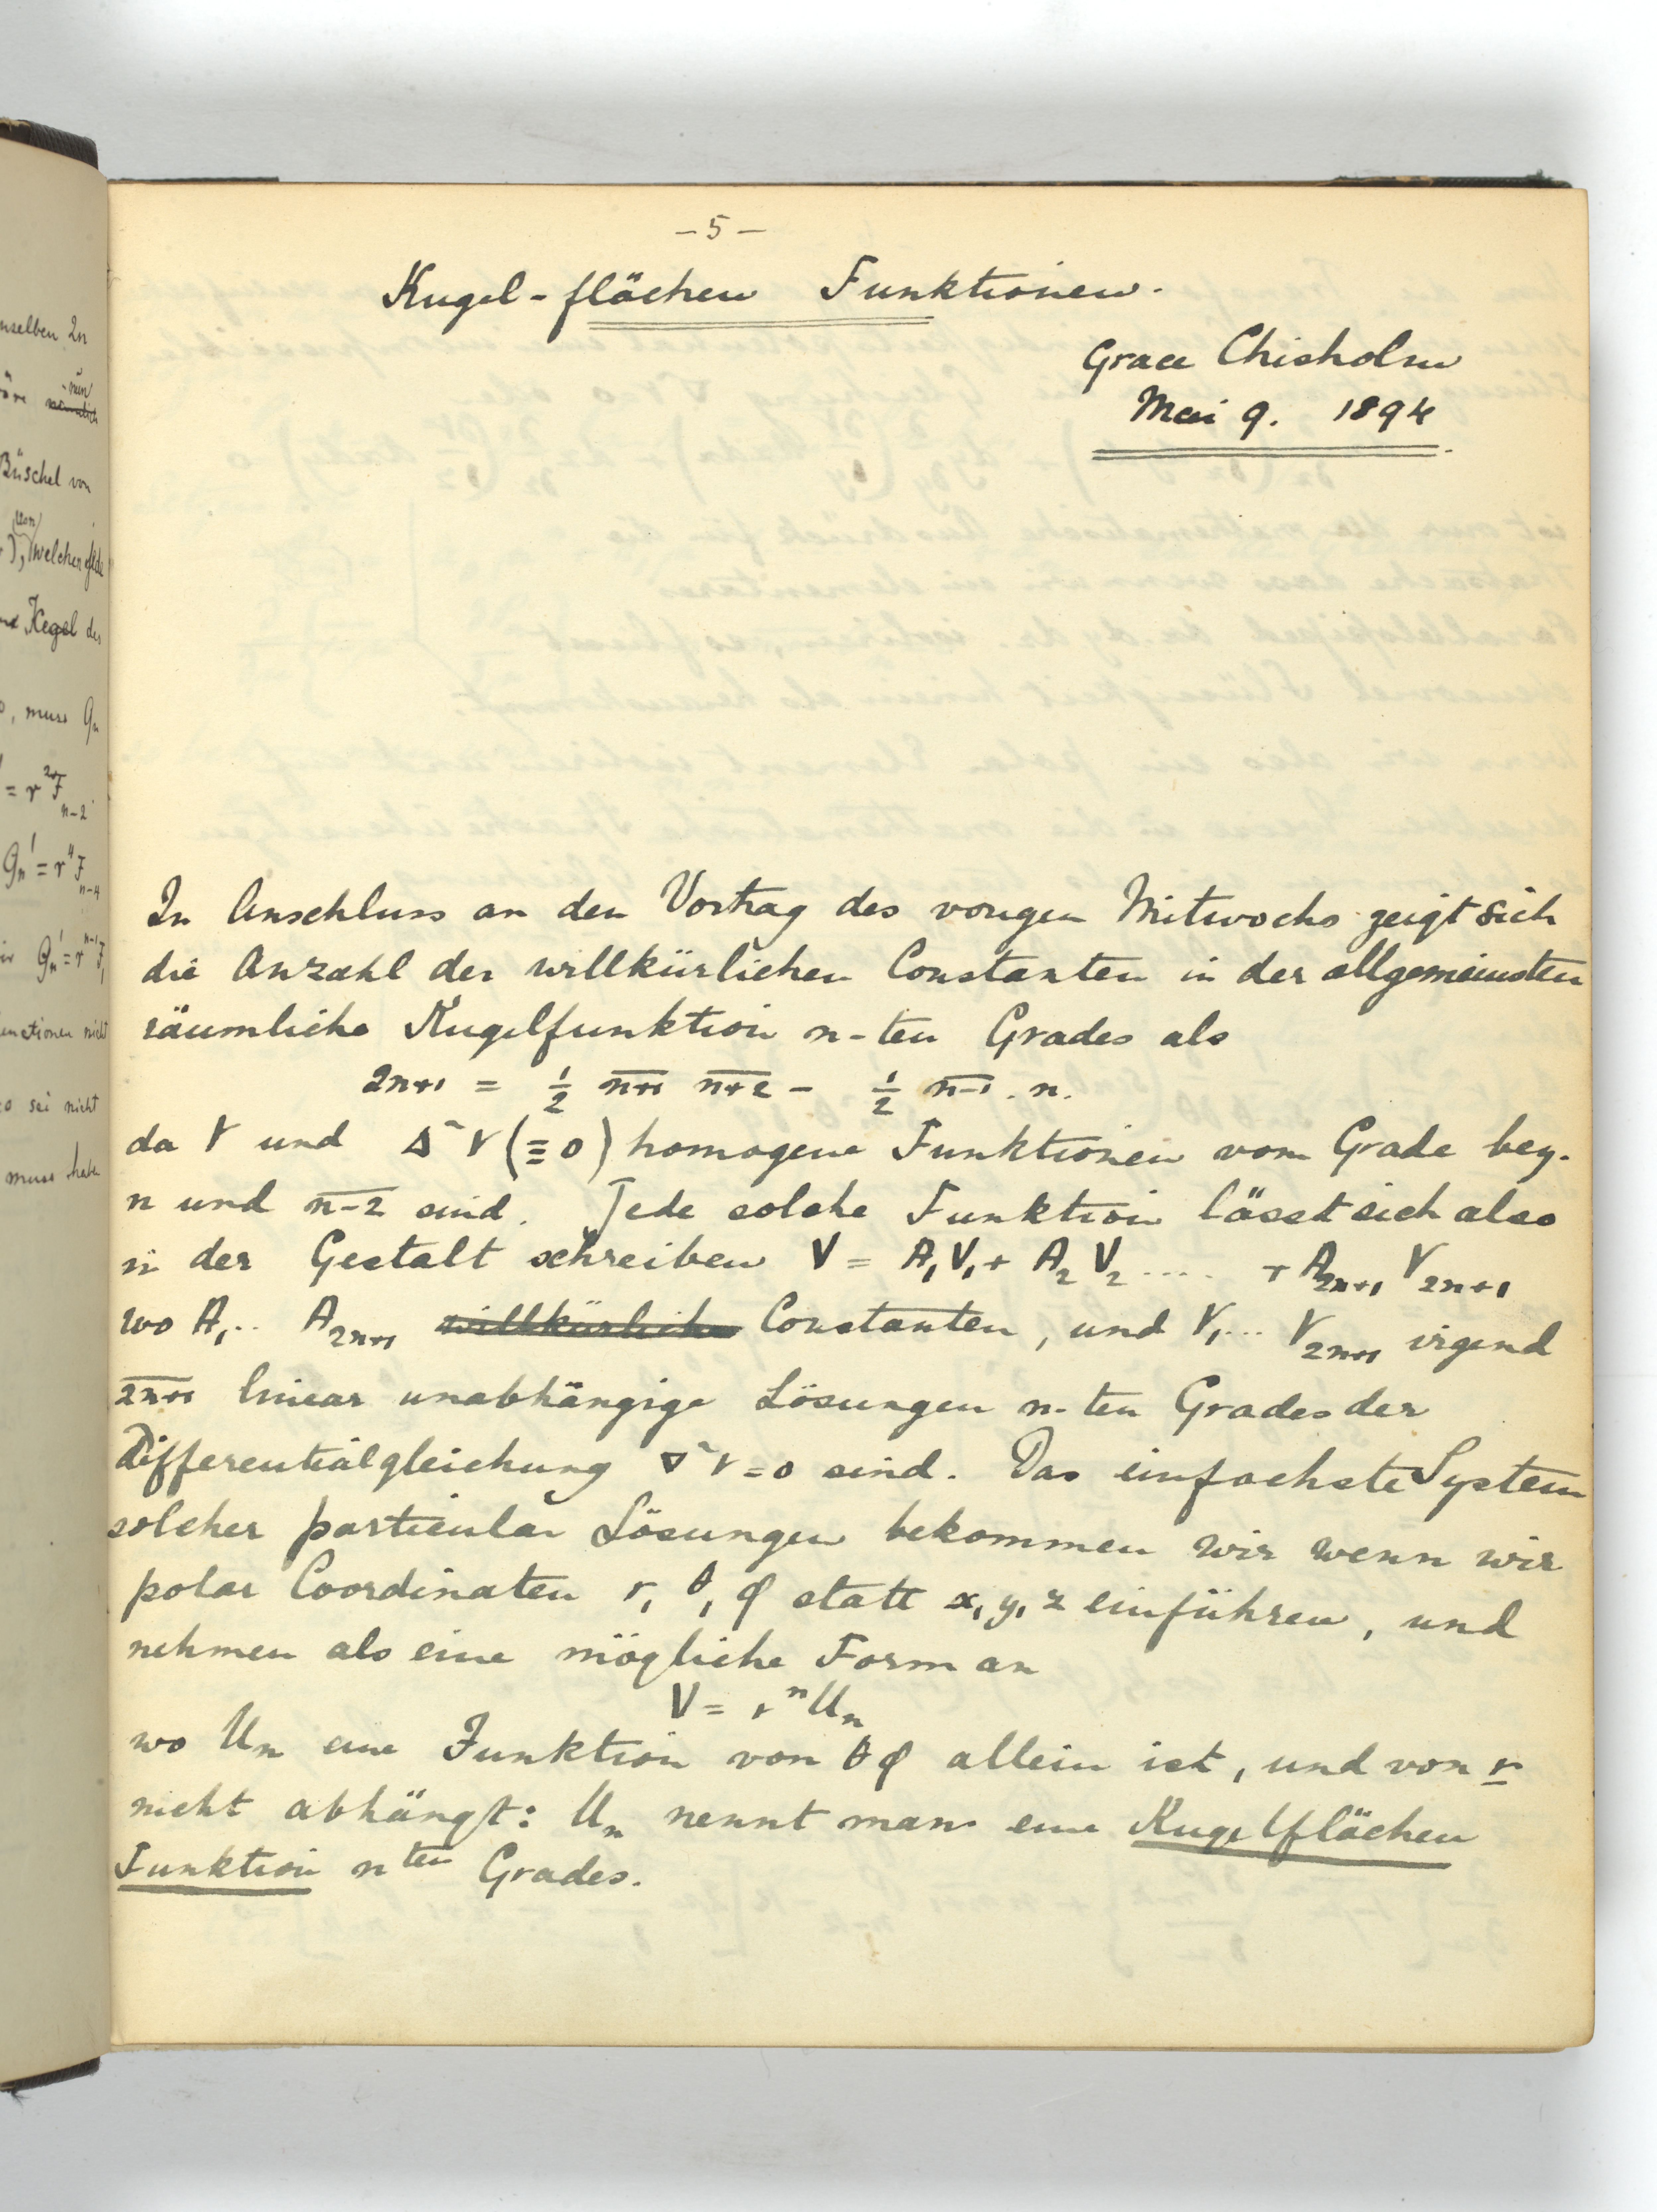 nselben In
nun
wäre nämlich
Büschel von
von
), welchen jede
Kegel des
, muss Gn
= r²F n-2
Gn' = r⁴F n-4
Gn' = r^(n-1) F₁
unctionen nicht
so sei nicht
muss habe
- 5 -
Kugel-flächen Funktionen.
Grace Chisholm
Mai 9. 1894
In Anschluss an den Vortrag des vorigen Mitwochs zeigt sich
die Anzahl der willkürlichen Constanten in der allgemeinsten
räumliche Kugelfunktion n-ten Grades als
2n+1 = ½ n̅+̅1̅ n̅+̅2̅ - ½ n̅-̅1̅ . n.
da V und ∆² V (≡ 0) homogene Funktionen vom Grade bez.
n und n̅-̅2̅ sind. Jede solche Funktion lässt sich also
in der Gestalt schreiben V = A₁V₁ + A₂V₂ .... + A₂ₙ₊₁ V₂ₙ₊₁
wo A₁.. A₂ₙ₊₁ willkürliche Constanten, und V₁... V₂ₙ₊₁ irgend
2̅n̅+̅1̅ linear unabhängige Lösungen n-ten Grades der
Differentialgleichung ∇² V = 0 sind. Das einfachste System
solcher particular Lösungen bekommen wir wenn wir
polar Coordinaten r, θ, φ statt x, y, z einführen, und
nehmen als eine mögliche Form an
V = rⁿ Uₙ
wo Uₙ eine Funktion von θ φ allein ist, und von r
nicht abhängt: Uₙ nennt man eine Kugelflächen
Funktion nten Grades.